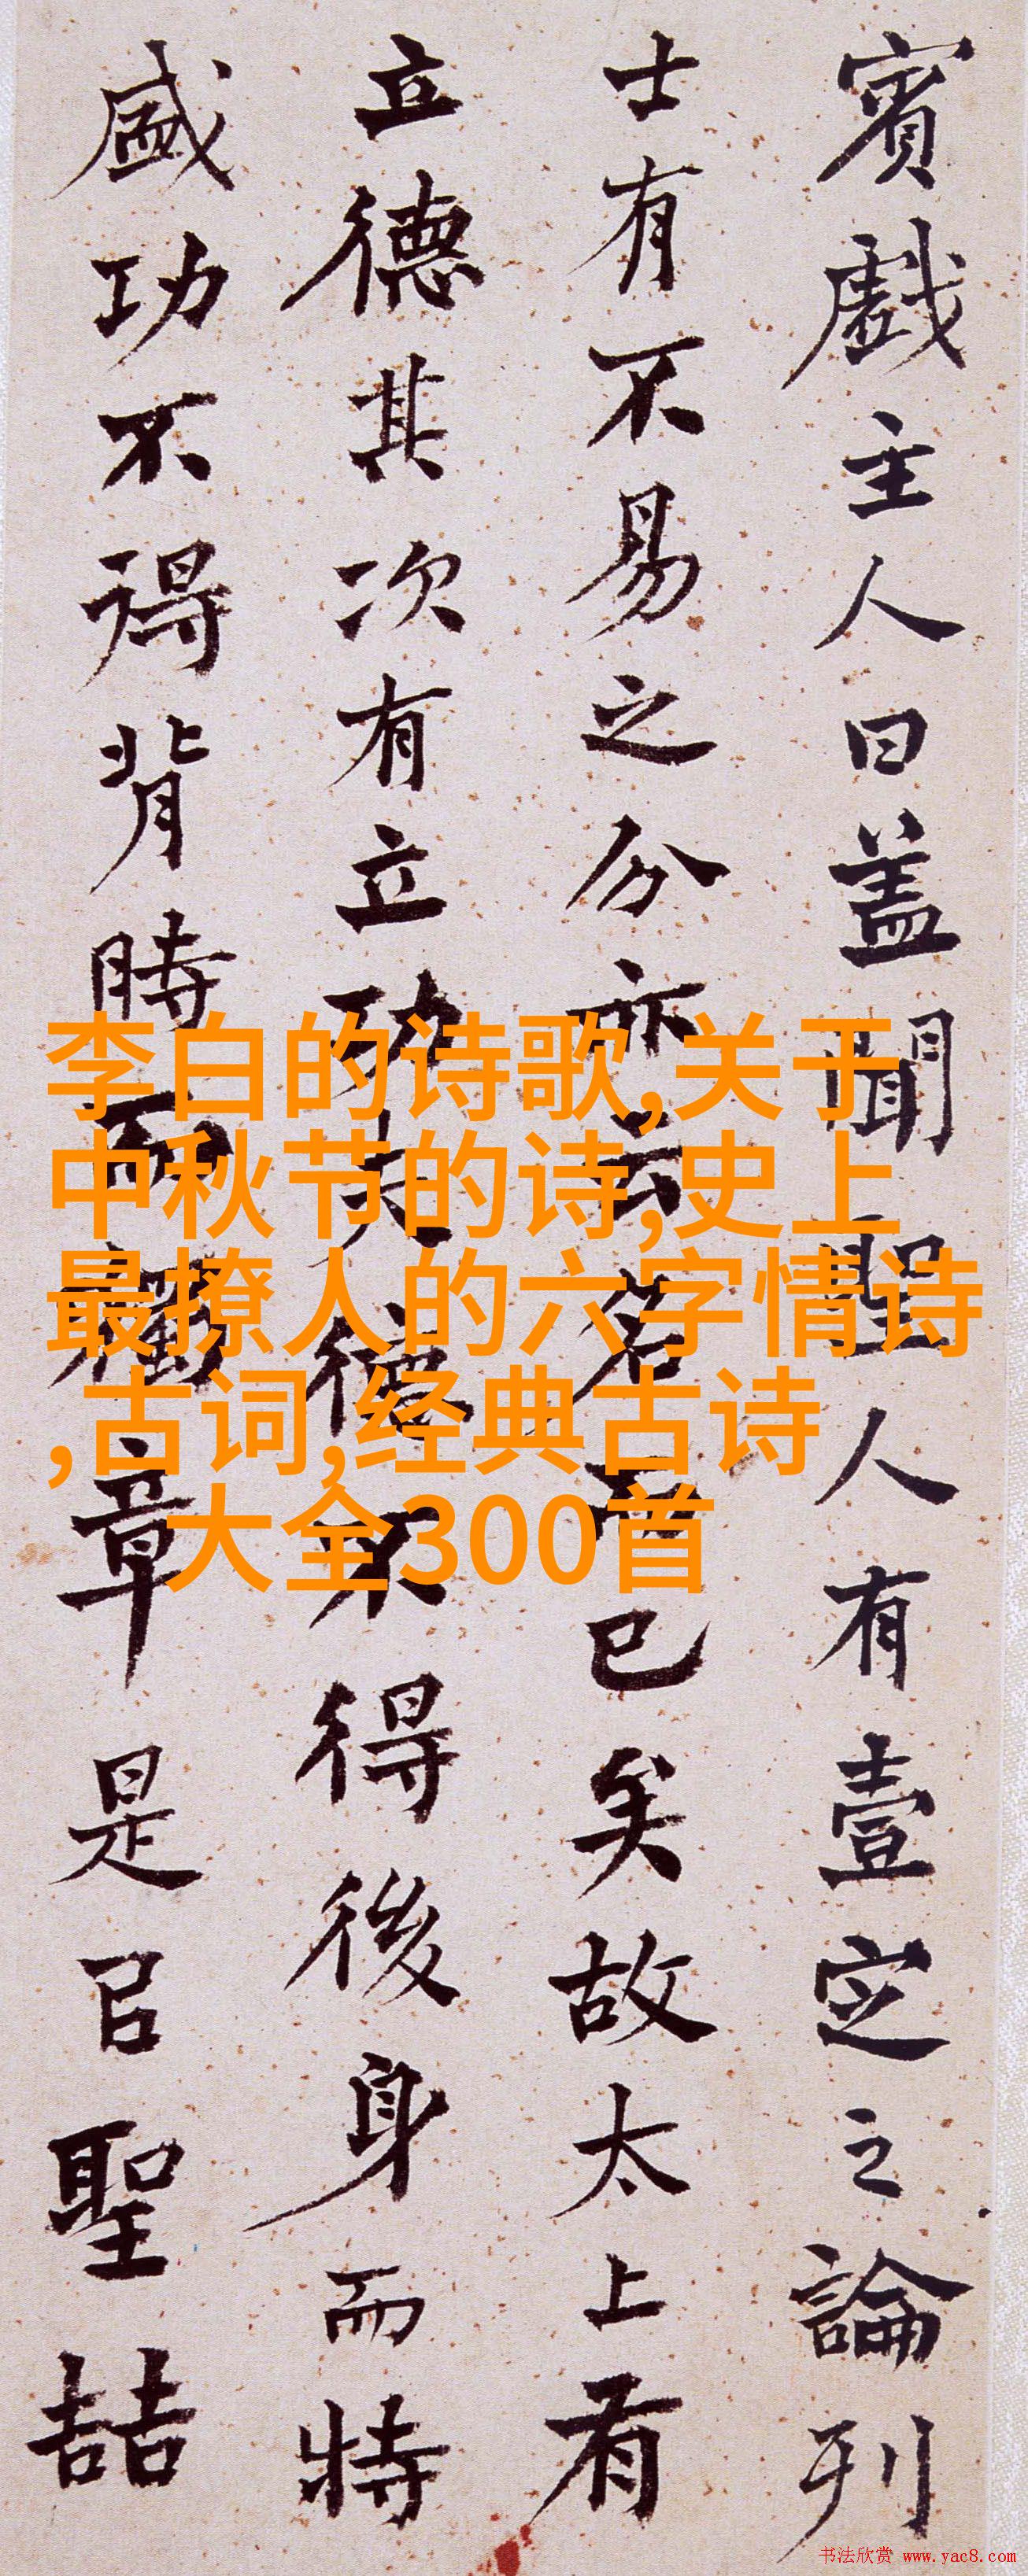 賓戲主人曰蓋聞聖人有壹定之論列
士有不易之分亦云名而已矣故太上有
立德其次有立功夫德不得後身而特
盛功不得背時而獨章是㠯聖喆
李白的诗歌,关于
中秋节的诗,史上
最撩人的六字情诗
,古词,经典古诗
大全300首
书法欣赏 www.yac8.com